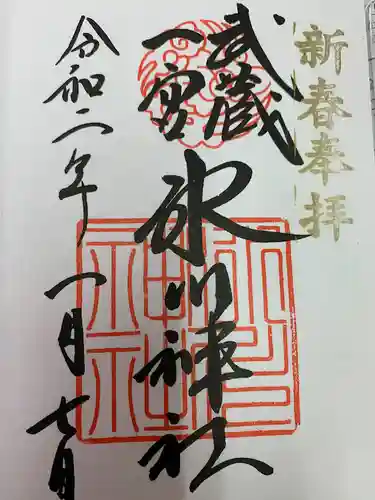 新春奉拝
武蔵
一宮
氷川神社
令和二年
一月七日